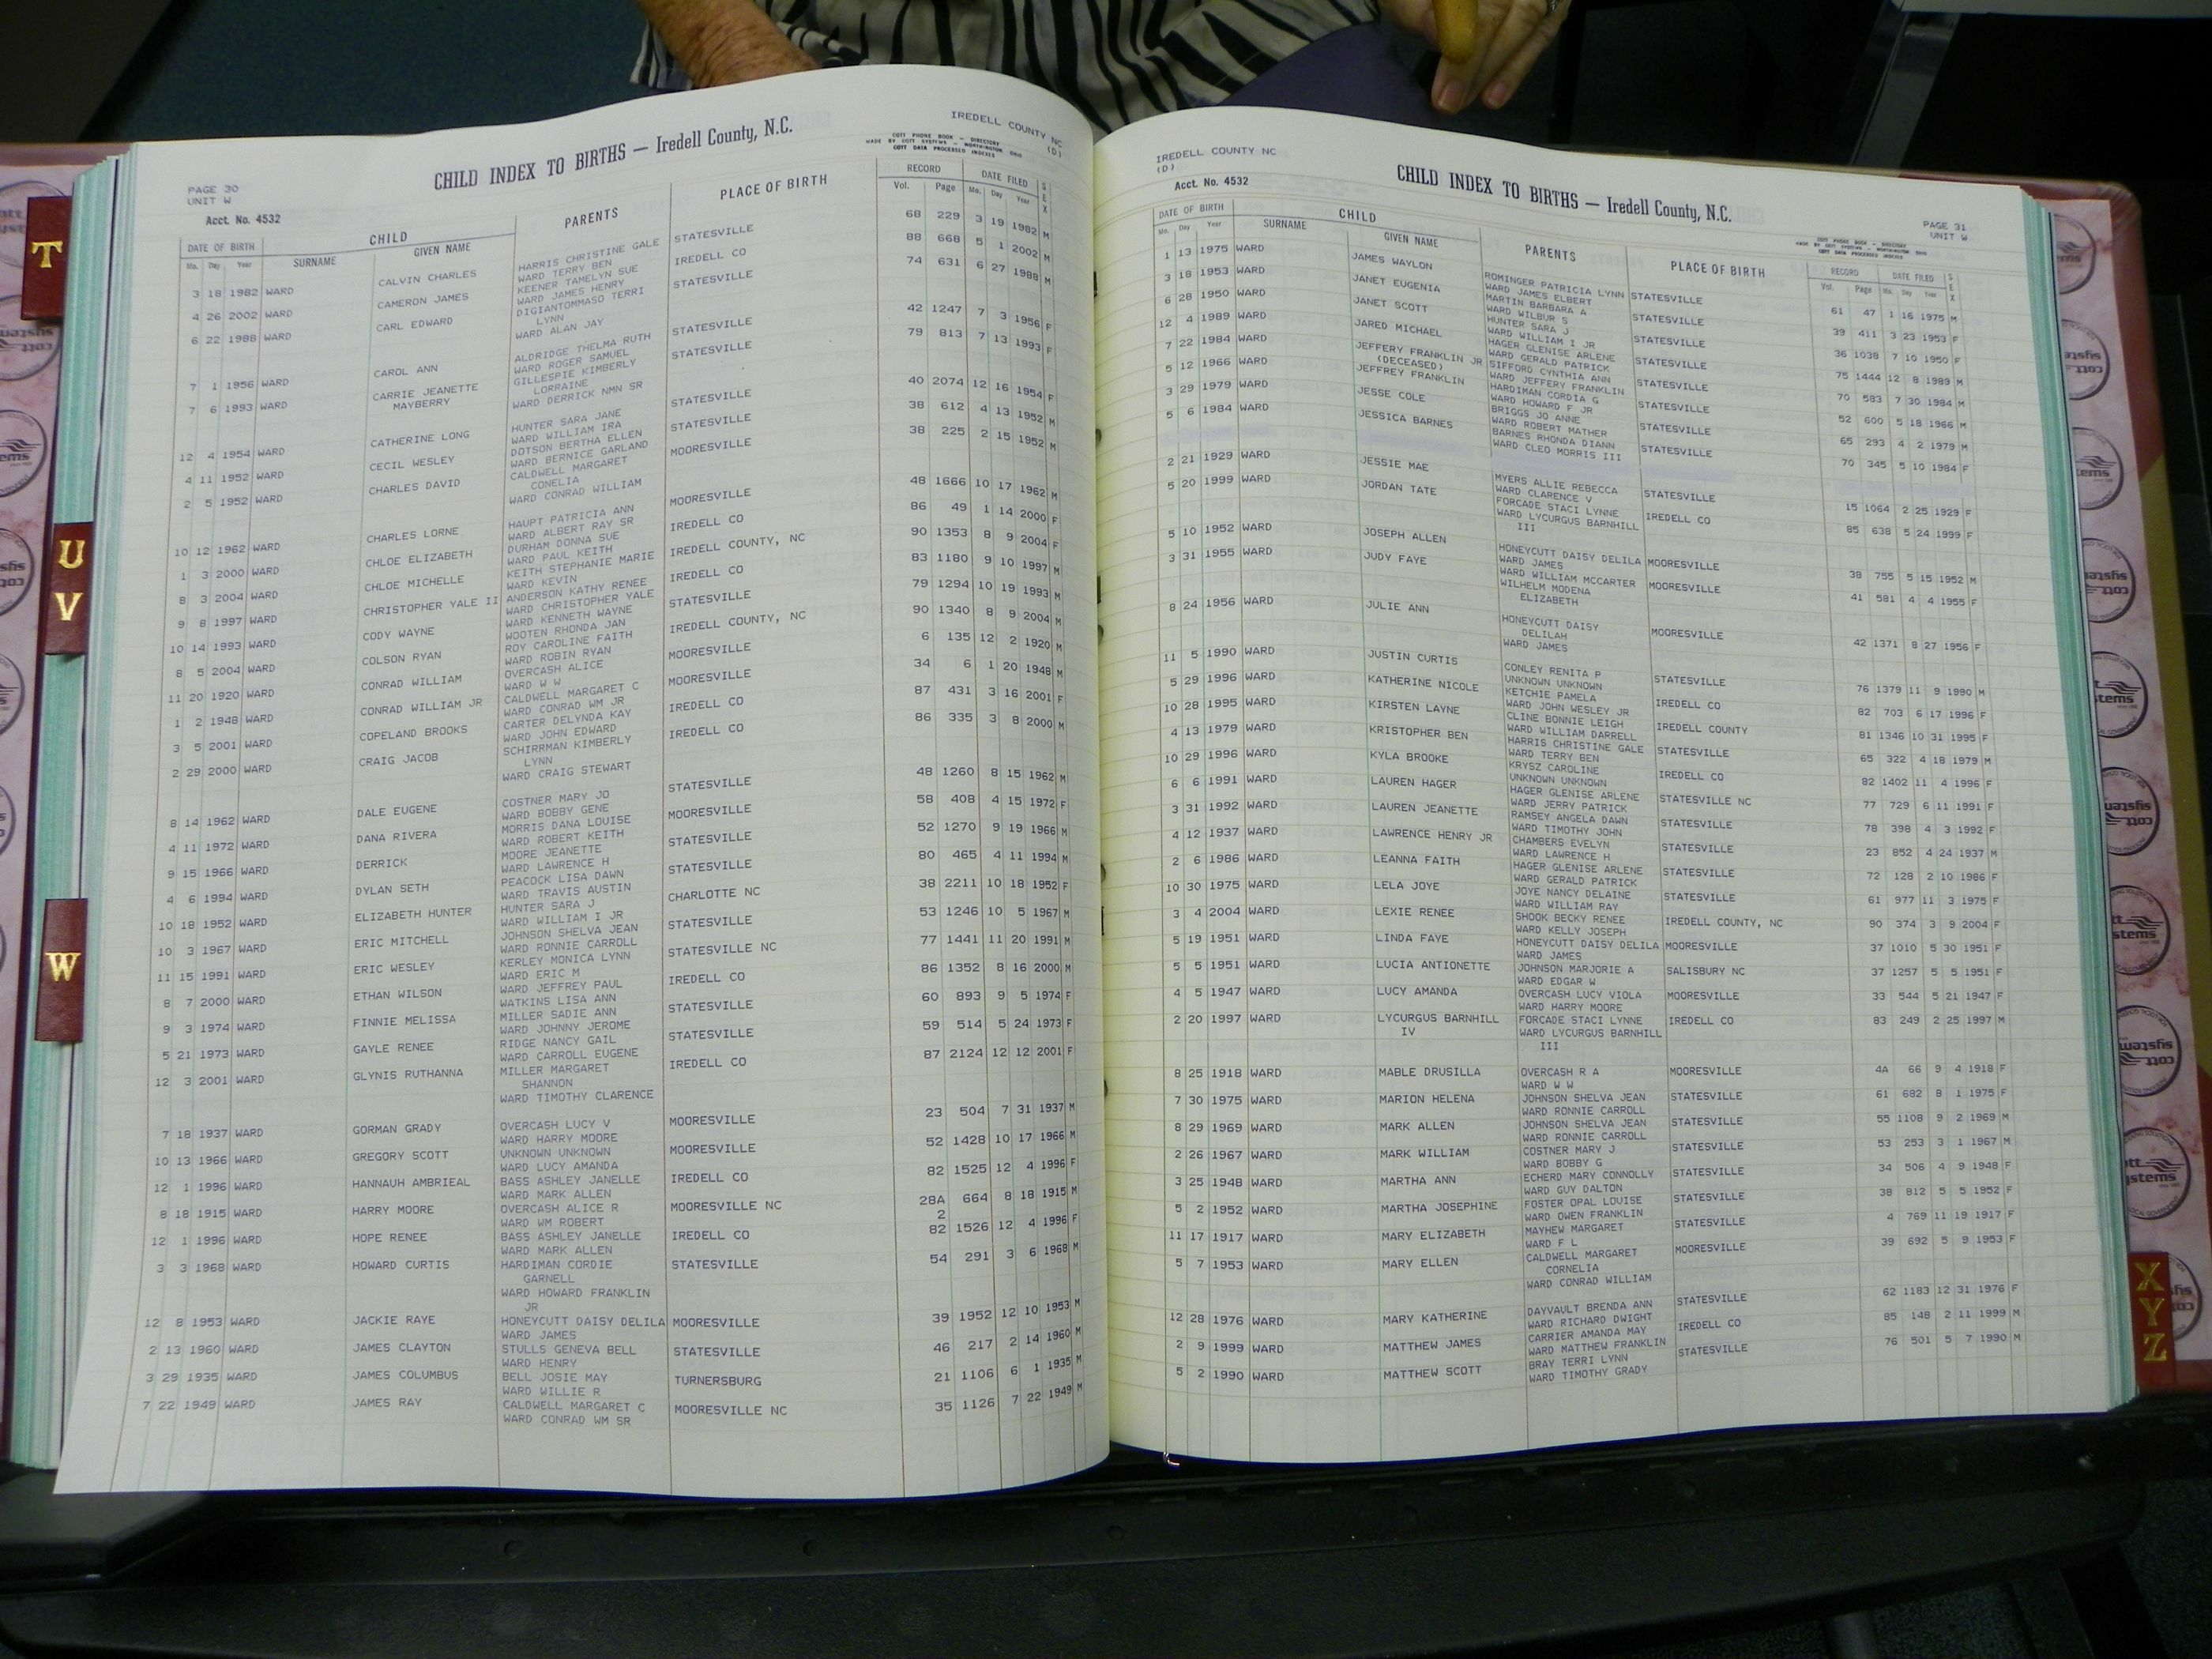 T
U
V
W
X
Y
Z
PAGE 30
UNIT W
Acct. No. 4532
CHILD INDEX TO BIRTHS — Iredell County, N.C.
IREDELL COUNTY NC
(D)
COTT PHONE BOOK - DIRECTORY
MADE BY COTT SYSTEMS - WORTHINGTON, OHIO
COTT DATA PROCESSED INDEXES
DATE OF BIRTH CHILD PARENTS PLACE OF BIRTH RECORD DATE FILED SEX
Mo. Day Year SURNAME GIVEN NAME Vol. Page Mo. Day Year
3 18 1982 WARD CALVIN CHARLES HARRIS CHRISTINE GALE STATESVILLE 68 229 3 19 1982 M
WARD TERRY BEN
4 26 2002 WARD CAMERON JAMES KEENER TAMELYN SUE IREDELL CO 88 668 5 1 2002 M
WARD JAMES HENRY
6 22 1988 WARD CARL EDWARD DIGIANTOMMASO TERRI STATESVILLE 74 631 6 27 1988 M
LYNN
WARD ALAN JAY
7 1 1956 WARD CAROL ANN ALDRIDGE THELMA RUTH STATESVILLE 42 1247 7 3 1956 F
WARD ROGER SAMUEL
7 6 1993 WARD CARRIE JEANETTE GILLESPIE KIMBERLY STATESVILLE 79 813 7 13 1993 F
MAYBERRY LORRAINE
WARD DERRICK NMN SR
12 4 1954 WARD CATHERINE LONG HUNTER SARA JANE STATESVILLE 40 2074 12 16 1954 F
WARD WILLIAM IRA
4 11 1952 WARD CECIL WESLEY DOTSON BERTHA ELLEN STATESVILLE 38 612 4 13 1952 M
WARD BERNICE GARLAND
2 5 1952 WARD CHARLES DAVID CALDWELL MARGARET MOORESVILLE 38 225 2 15 1952 M
CONELIA
WARD CONRAD WILLIAM
10 12 1962 WARD CHARLES LORNE HAUPT PATRICIA ANN MOORESVILLE 48 1666 10 17 1962 M
WARD ALBERT RAY SR
1 3 2000 WARD CHLOE ELIZABETH DURHAM DONNA SUE IREDELL CO 86 49 1 14 2000 F
WARD PAUL KEITH
8 3 2004 WARD CHLOE MICHELLE KEITH STEPHANIE MARIE IREDELL COUNTY, NC 90 1353 8 9 2004 F
WARD KEVIN
9 8 1997 WARD CHRISTOPHER YALE II ANDERSON KATHY RENEE IREDELL CO 83 1180 9 10 1997 M
WARD CHRISTOPHER YALE
10 14 1993 WARD CODY WAYNE WARD KENNETH WAYNE STATESVILLE 79 1294 10 19 1993 M
WOOTEN RHONDA JAN
8 5 2004 WARD COLSON RYAN ROY CAROLINE FAITH IREDELL COUNTY, NC 90 1340 8 9 2004 M
WARD ROBIN RYAN
11 20 1920 WARD CONRAD WILLIAM OVERCASH ALICE MOORESVILLE 6 135 12 2 1920 M
WARD W W
1 2 1948 WARD CONRAD WILLIAM JR CALDWELL MARGARET C MOORESVILLE 34 6 1 20 1948 M
WARD CONRAD WM JR
3 5 2001 WARD COPELAND BROOKS CARTER DELYNDA KAY IREDELL CO 87 431 3 16 2001 F
WARD JOHN EDWARD
2 29 2000 WARD CRAIG JACOB SCHIRRMAN KIMBERLY IREDELL CO 86 335 3 8 2000 M
LYNN
WARD CRAIG STEWART
8 14 1962 WARD DALE EUGENE COSTNER MARY JO STATESVILLE 48 1260 8 15 1962 M
WARD BOBBY GENE
4 11 1972 WARD DANA RIVERA MORRIS DANA LOUISE MOORESVILLE 58 408 4 15 1972 F
WARD ROBERT KEITH
9 15 1966 WARD DERRICK MOORE JEANETTE STATESVILLE 52 1270 9 19 1966 M
WARD LAWRENCE H
4 6 1994 WARD DYLAN SETH PEACOCK LISA DAWN STATESVILLE 80 465 4 11 1994 M
WARD TRAVIS AUSTIN
10 18 1952 WARD ELIZABETH HUNTER HUNTER SARA J CHARLOTTE NC 38 2211 10 18 1952 F
WARD WILLIAM I JR
10 3 1967 WARD ERIC MITCHELL JOHNSON SHELVA JEAN STATESVILLE 53 1246 10 5 1967 M
WARD RONNIE CARROLL
11 15 1991 WARD ERIC WESLEY KERLEY MONICA LYNN STATESVILLE NC 77 1441 11 20 1991 M
WARD ERIC M
8 7 2000 WARD ETHAN WILSON WARD JEFFREY PAUL IREDELL CO 86 1352 8 16 2000 M
WATKINS LISA ANN
9 3 1974 WARD FINNIE MELISSA MILLER SADIE ANN STATESVILLE 60 893 9 5 1974 F
WARD JOHNNY JEROME
5 21 1973 WARD GAYLE RENEE RIDGE NANCY GAIL STATESVILLE 59 514 5 24 1973 F
WARD CARROLL EUGENE
12 3 2001 WARD GLYNIS RUTHANNA MILLER MARGARET IREDELL CO 87 2124 12 12 2001 F
SHANNON
WARD TIMOTHY CLARENCE
7 18 1937 WARD GORMAN GRADY OVERCASH LUCY V MOORESVILLE 23 504 7 31 1937 M
WARD HARRY MOORE
10 13 1966 WARD GREGORY SCOTT UNKNOWN UNKNOWN MOORESVILLE 52 1428 10 17 1966 M
WARD LUCY AMANDA
12 1 1996 WARD HANNAUH AMBRIEAL BASS ASHLEY JANELLE IREDELL CO 82 1525 12 4 1996 F
WARD MARK ALLEN
8 18 1915 WARD HARRY MOORE OVERCASH ALICE R MOORESVILLE NC 28A 664 8 18 1915 M
WARD WM ROBERT 2
12 1 1996 WARD HOPE RENEE BASS ASHLEY JANELLE IREDELL CO 82 1526 12 4 1996 F
WARD MARK ALLEN
3 3 1968 WARD HOWARD CURTIS HARDIMAN CORDIE STATESVILLE 54 291 3 6 1968 M
GARNELL
WARD HOWARD FRANKLIN
JR
12 8 1953 WARD JACKIE RAYE HONEYCUTT DAISY DELILA MOORESVILLE 39 1952 12 10 1953 M
WARD JAMES
2 13 1960 WARD JAMES CLAYTON STULLS GENEVA BELL STATESVILLE 46 217 2 14 1960 M
WARD HENRY
3 29 1935 WARD JAMES COLUMBUS BELL JOSIE MAY TURNERSBURG 21 1106 6 1 1935 M
WARD WILLIE R
7 22 1949 WARD JAMES RAY CALDWELL MARGARET C MOORESVILLE NC 35 1126 7 22 1949 M
WARD CONRAD WM SR
IREDELL COUNTY NC
(D)
Acct. No. 4532
CHILD INDEX TO BIRTHS — Iredell County, N.C.
PAGE 31
UNIT W
COTT PHONE BOOK - DIRECTORY
MADE BY COTT SYSTEMS - WORTHINGTON, OHIO
COTT DATA PROCESSED INDEXES
DATE OF BIRTH CHILD PARENTS PLACE OF BIRTH RECORD DATE FILED SEX
Mo. Day Year SURNAME GIVEN NAME Vol. Page Mo. Day Year
1 13 1975 WARD JAMES WAYLON ROMINGER PATRICIA LYNN STATESVILLE 61 47 1 16 1975 M
WARD JAMES ELBERT
3 18 1953 WARD JANET EUGENIA MARTIN BARBARA A STATESVILLE 39 411 3 23 1953 F
WARD WILBUR S
6 28 1950 WARD JANET SCOTT HUNTER SARA J STATESVILLE 36 1038 7 10 1950 F
WARD WILLIAM I JR
12 4 1989 WARD JARED MICHAEL HAGER GLENISE ARLENE STATESVILLE 75 1444 12 8 1989 M
WARD GERALD PATRICK
7 22 1984 WARD JEFFERY FRANKLIN JR SIFFORD CYNTHIA ANN STATESVILLE 70 583 7 30 1984 M
(DECEASED) WARD JEFFERY FRANKLIN
5 12 1966 WARD JEFFREY FRANKLIN HARDIMAN CORDIA G STATESVILLE 52 600 5 18 1966 M
WARD HOWARD F JR
3 29 1979 WARD JESSE COLE BRIGGS JO ANNE STATESVILLE 65 293 4 2 1979 M
WARD ROBERT MATHER
5 6 1984 WARD JESSICA BARNES BARNES RHONDA DIANN STATESVILLE 70 345 5 10 1984 F
WARD CLEO MORRIS III
2 21 1929 WARD JESSIE MAE MYERS ALLIE REBECCA STATESVILLE 15 1064 2 25 1929 F
WARD CLARENCE V
5 20 1999 WARD JORDAN TATE FORCADE STACI LYNNE IREDELL CO 85 638 5 24 1999 F
WARD LYCURGUS BARNHILL
III
5 10 1952 WARD JOSEPH ALLEN HONEYCUTT DAISY DELILA MOORESVILLE 38 755 5 15 1952 M
WARD JAMES
3 31 1955 WARD JUDY FAYE WARD WILLIAM MCCARTER MOORESVILLE 41 581 4 4 1955 F
WILHELM MODENA
ELIZABETH
8 24 1956 WARD JULIE ANN HONEYCUTT DAISY MOORESVILLE 42 1371 8 27 1956 F
DELILAH
WARD JAMES
11 5 1990 WARD JUSTIN CURTIS CONLEY RENITA P STATESVILLE 76 1379 11 9 1990 M
UNKNOWN UNKNOWN
5 29 1996 WARD KATHERINE NICOLE KETCHIE PAMELA IREDELL CO 82 703 6 17 1996 F
WARD JOHN WESLEY JR
10 28 1995 WARD KIRSTEN LAYNE CLINE BONNIE LEIGH IREDELL COUNTY 81 1346 10 31 1995 F
WARD WILLIAM DARRELL
4 13 1979 WARD KRISTOPHER BEN HARRIS CHRISTINE GALE STATESVILLE 65 322 4 18 1979 M
WARD TERRY BEN
10 29 1996 WARD KYLA BROOKE KRYSZ CAROLINE IREDELL CO 82 1402 11 4 1996 F
UNKNOWN UNKNOWN
6 6 1991 WARD LAUREN HAGER HAGER GLENISE ARLENE STATESVILLE NC 77 729 6 11 1991 F
WARD JERRY PATRICK
3 31 1992 WARD LAUREN JEANETTE RAMSEY ANGELA DAWN STATESVILLE 78 398 4 3 1992 F
WARD TIMOTHY JOHN
4 12 1937 WARD LAWRENCE HENRY JR CHAMBERS EVELYN STATESVILLE 23 852 4 24 1937 M
WARD LAWRENCE H
2 6 1986 WARD LEANNA FAITH HAGER GLENISE ARLENE STATESVILLE 72 128 2 10 1986 F
WARD GERALD PATRICK
10 30 1975 WARD LELA JOYE JOYE NANCY DELAINE STATESVILLE 61 977 11 3 1975 F
WARD WILLIAM RAY
3 4 2004 WARD LEXIE RENEE SHOOK BECKY RENEE IREDELL COUNTY, NC 90 374 3 9 2004 F
WARD KELLY JOSEPH
5 19 1951 WARD LINDA FAYE HONEYCUTT DAISY DELILA MOORESVILLE 37 1010 5 30 1951 F
WARD JAMES
5 5 1951 WARD LUCIA ANTIONETTE JOHNSON MARJORIE A SALISBURY NC 37 1257 5 5 1951 F
WARD EDGAR W
4 5 1947 WARD LUCY AMANDA OVERCASH LUCY VIOLA MOORESVILLE 33 544 5 21 1947 F
WARD HARRY MOORE
2 20 1997 WARD LYCURGUS BARNHILL FORCADE STACI LYNNE IREDELL CO 83 249 2 25 1997 M
IV WARD LYCURGUS BARNHILL
III
8 25 1918 WARD MABLE DRUSILLA OVERCASH R A MOORESVILLE 4A 66 9 4 1918 F
WARD W W
7 30 1975 WARD MARION HELENA JOHNSON SHELVA JEAN STATESVILLE 61 682 8 1 1975 F
WARD RONNIE CARROLL
8 29 1969 WARD MARK ALLEN JOHNSON SHELVA JEAN STATESVILLE 55 1108 9 2 1969 M
WARD RONNIE CARROLL
2 26 1967 WARD MARK WILLIAM COSTNER MARY J STATESVILLE 53 253 3 1 1967 M
WARD BOBBY G
3 25 1948 WARD MARTHA ANN ECHERD MARY CONNOLLY STATESVILLE 34 506 4 9 1948 F
WARD GUY DALTON
5 2 1952 WARD MARTHA JOSEPHINE FOSTER OPAL LOUISE STATESVILLE 38 812 5 5 1952 F
WARD OWEN FRANKLIN
11 17 1917 WARD MARY ELIZABETH MAYHEW MARGARET STATESVILLE 4 769 11 19 1917 F
WARD F L
5 7 1953 WARD MARY ELLEN CALDWELL MARGARET MOORESVILLE 39 692 5 9 1953 F
CORNELIA
WARD CONRAD WILLIAM
12 28 1976 WARD MARY KATHERINE DAYVAULT BRENDA ANN STATESVILLE 62 1183 12 31 1976 F
WARD RICHARD DWIGHT
2 9 1999 WARD MATTHEW JAMES CARRIER AMANDA MAY IREDELL CO 85 148 2 11 1999 M
WARD MATTHEW FRANKLIN
5 2 1990 WARD MATTHEW SCOTT BRAY TERRI LYNN STATESVILLE 76 501 5 7 1990 M
WARD TIMOTHY GRADY